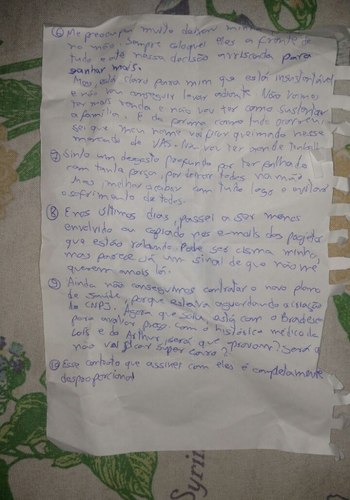 6) Me preocupa muito deixar minha
na mão. Sempre coloquei eles a frente de
tudo e até nessa decisão arriscada para
ganhar mais.
Mas, está claro para mim que está insustentável
e não vou conseguir levar adiante. Não vamos
ter mais renda e não vou ter como sustentar
a família. E da forma como tudo ocorreu
sei que meu nome vai ficar queimado nesse
mercado de VAS. Não vou ter grande
7) Sinto um desgosto profundo por ter falhado
com tanta força, por deixar todos na mão.
Mas, melhor acabar com tudo logo e
o sofrimento de todos.
8) E nos últimos dias, passei a ser menos
envolvido ou copiado nos e-mails dos projetos
que estão rolando. Pode ser cisma minha,
mas parece já um sinal de que não me
querem mais lá.
9) Ainda não conseguimos contratar o novo plano
de saúde, porque estava aguardando a criação
do CNPJ. Agora que saiu, está com o Bradesco
para avaliar preço. Com o histórico médico da
e do Arthur, será que aprovam? Será q
não vai ficar super caro?
10) Esse contrato que assinei com eles é completamente
desproporcional
Syrin